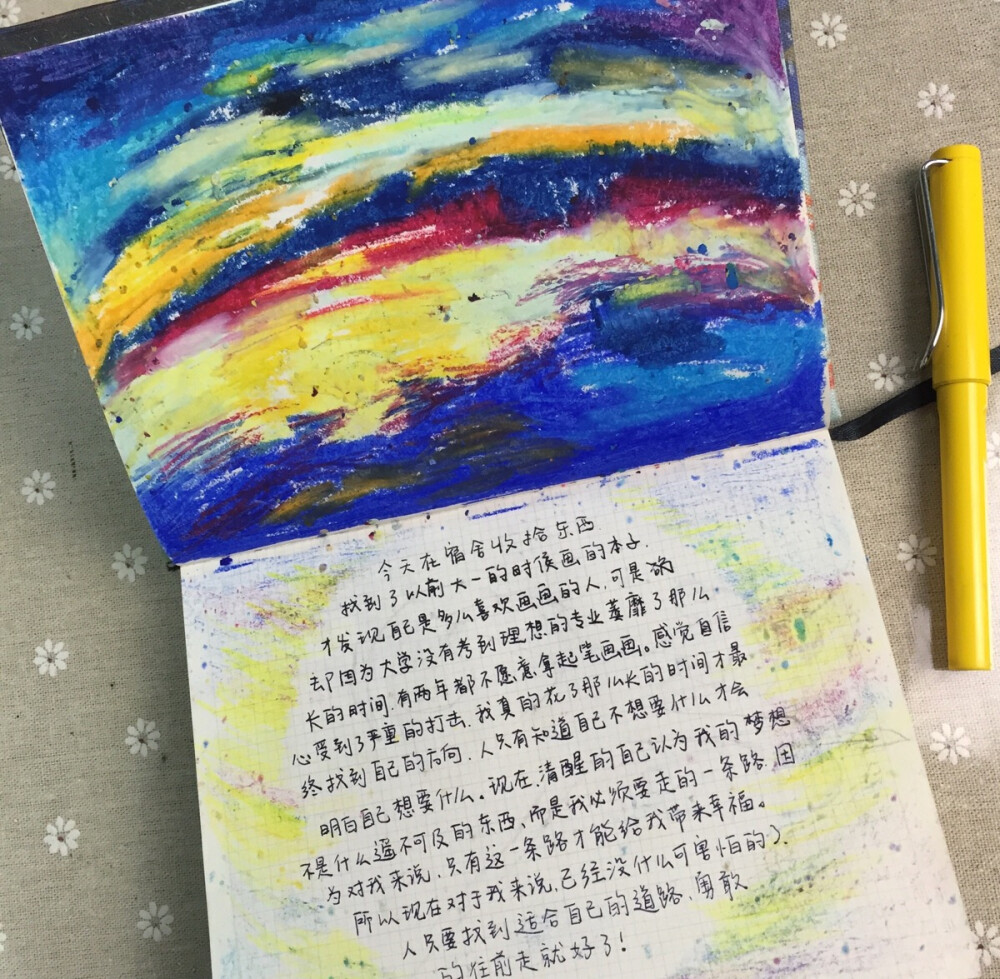 今天在宿舍收拾东西
找到了以前大一的时候画的本子
才发现自己是多么喜欢画画的人.可是
却因为大学没有考到理想的专业萎靡了那么
长的时间.有两年都不愿意拿起笔画画。感觉自信
心受到了严重的打击.我真的花了那么长的时间才最
终找到自己的方向.人只有知道自己不想要什么才会
明白自己想要什么。现在.清醒的自己认为我的梦想
不是什么遥不可及的东西、而是我必须要走的一条路.因
为对我来说.只有这一条路才能给我带来幸福。
所以现在对于我来说.已经没什么可害怕的了.
人只要找到适合自己的道路、勇敢
的往前走就好了！